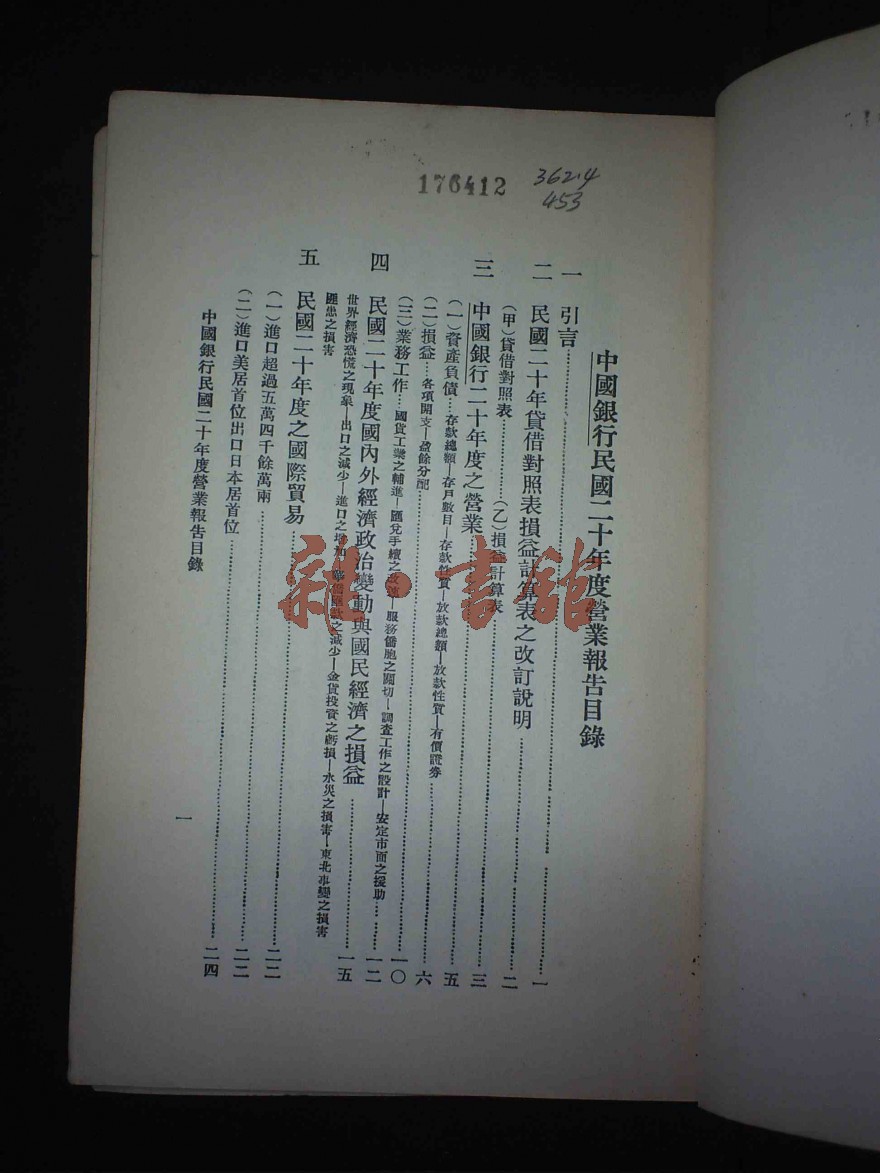 176412
362.4
453
中國銀行民國二十年度營業報告目錄
一 引言……一
二 民國二十年貸借對照表損益計算表之改訂說明……二
(甲)貸借對照表……(乙)損益計算表……三
三 中國銀行二十年度之營業……五
(一)資產負債…存款總額—存戶數目—存款性質—放款總額—放款性質—有價證券……六
(二)損益…各項開支—盈餘分配……一〇
(三)業務工作…國貨工業之輔進—匯兌手續之改進—服務僑胞之關切—調查工作之設計—安定市面之援助……一二
四 民國二十年度國內外經濟政治變動與國民經濟之損益……一五
世界經濟恐慌之現象—出口之減少—進口之增加—華僑匯款之減少—金貨投資之虧損—水災之損害—東北事變之損害
匪患之損害
五 民國二十年度之國際貿易……二二
(一)進口超過五萬四千餘萬兩……二二
(二)進口美居首位出口日本居首位……二四
中國銀行民國二十年度營業報告目錄
一